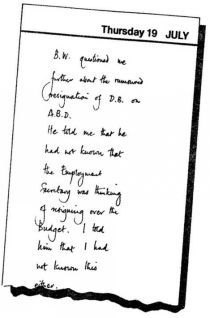 Thursday 19 JULY
B.W. questioned me
further about the rumoured
resignation of D.B. on
A.B.D.
He told me that he
had not known that
the Employment
Secretary was thinking
of resigning over the
Budget. I told
him that I had
not known this
either.